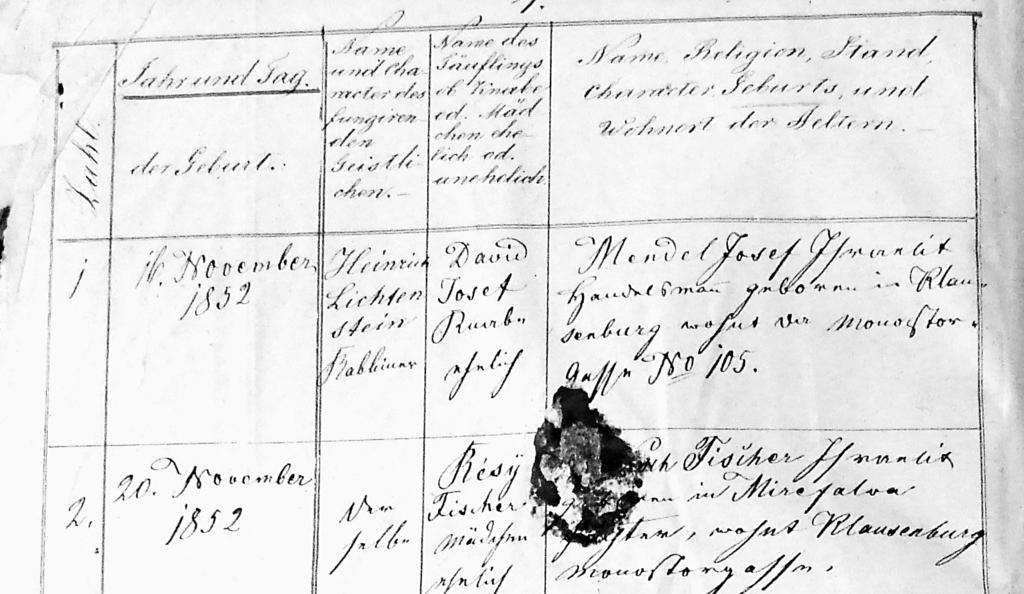 Zahl.
Jahr und Tag.
der Geburt.:
Name
und Cha-
racter des
fungiren-
den
Geistli
chen.-
Name des
Täuflings
ob Knabe
od. Mäd
chen ehe-
lich od.
unehelich
Name, Religion, Stand,
Character, Geburts, und
Wohnort der Aeltern.-
1
16. November
1852
Heinrich
Lichten
stein
Rabbiner
David
Josef
Knabe
ehelich
Mendel Josef Israelit
Handelsmann geboren in Klau-
senburg wohnt der Monostor-
gasse No 105.
2.
20. November
1852
der
selbe
Résÿ
Fischer
Mädchen
ehelich
Fischer Israelit
in Miresalva
wohnt Klausenburg
Monostorgasse.